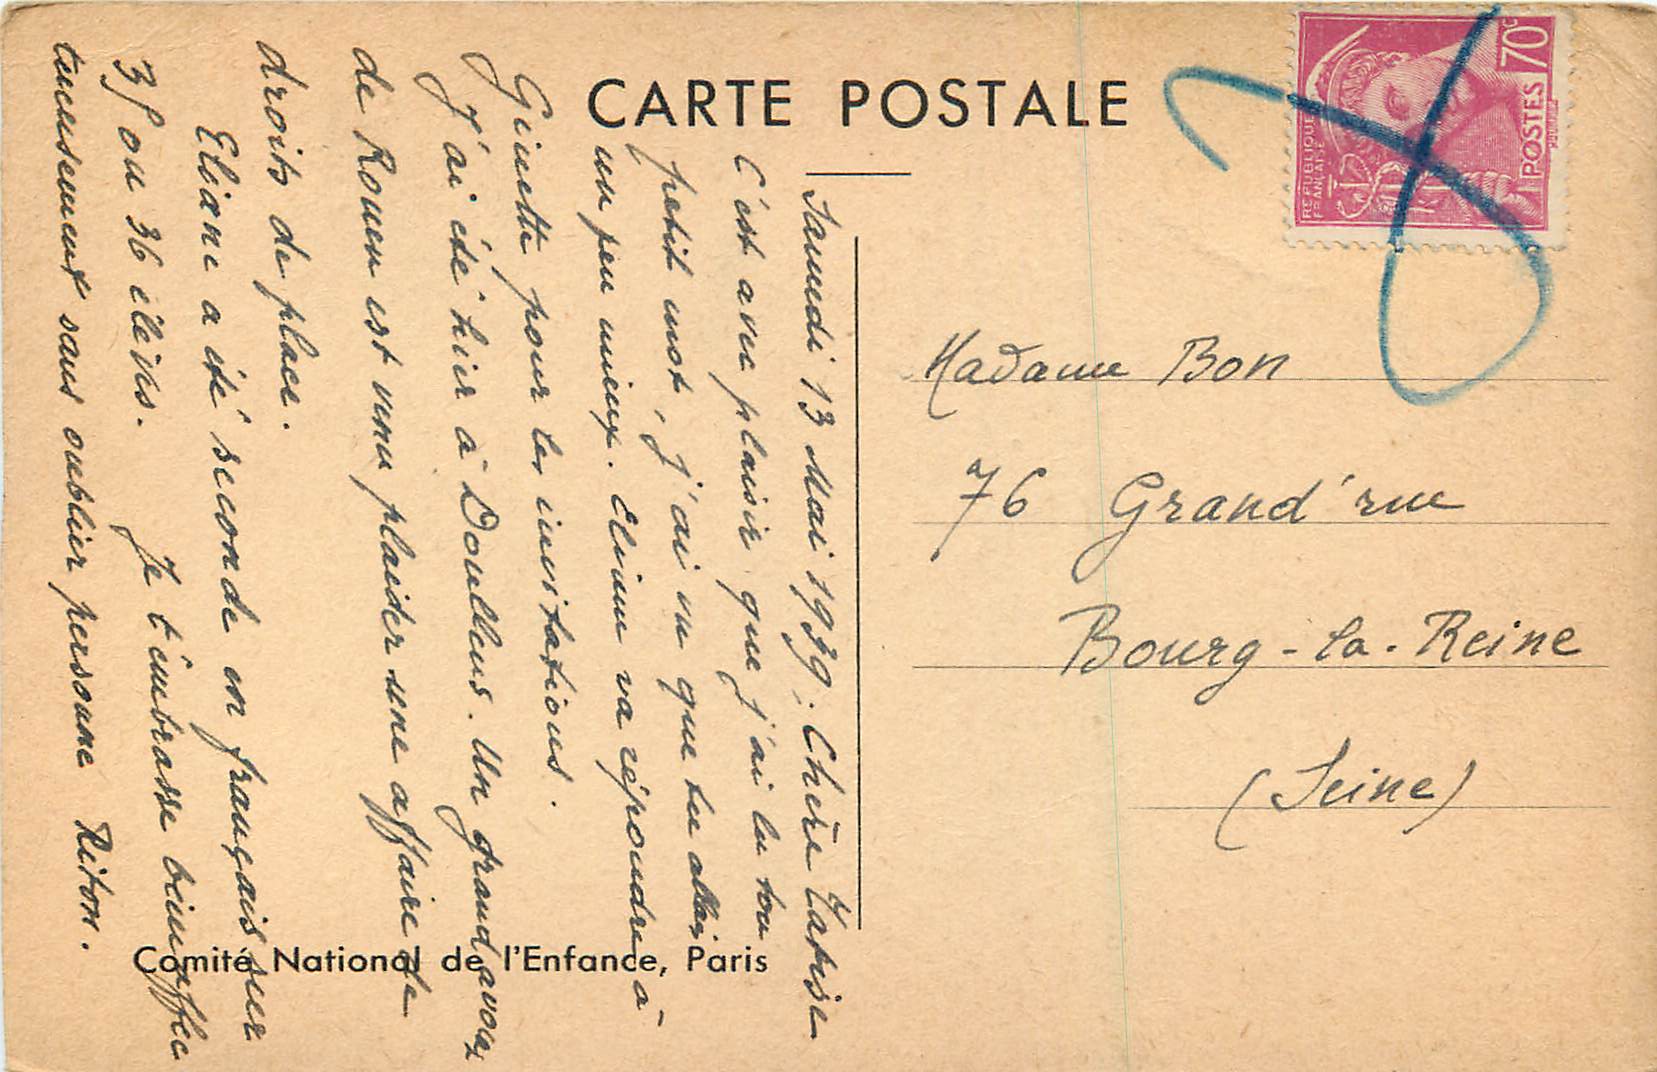 CARTE POSTALE
REPUBLIQUE
FRANÇAISE
POSTES 70c
Samedi 13 Mai 1939. Chère
C'est avec plaisir que j'ai lu ton
petit mot, j'ai vu que tu allais
un peu mieux. Eliane va répondre à
Ginette pour les invitations.
J'ai été hier à Doullens. Un grand avocat
de Rouen est venu plaider une affaire de
droits de place.
Eliane a été seconde en français sur
35 ou 36 élèves. Je t'embrasse bien affec
tueusement sans oublier personne Riton.
Comité National de l'Enfance, Paris
Madame Bon
76 Grand'rue
Bourg-la-Reine
(Seine)